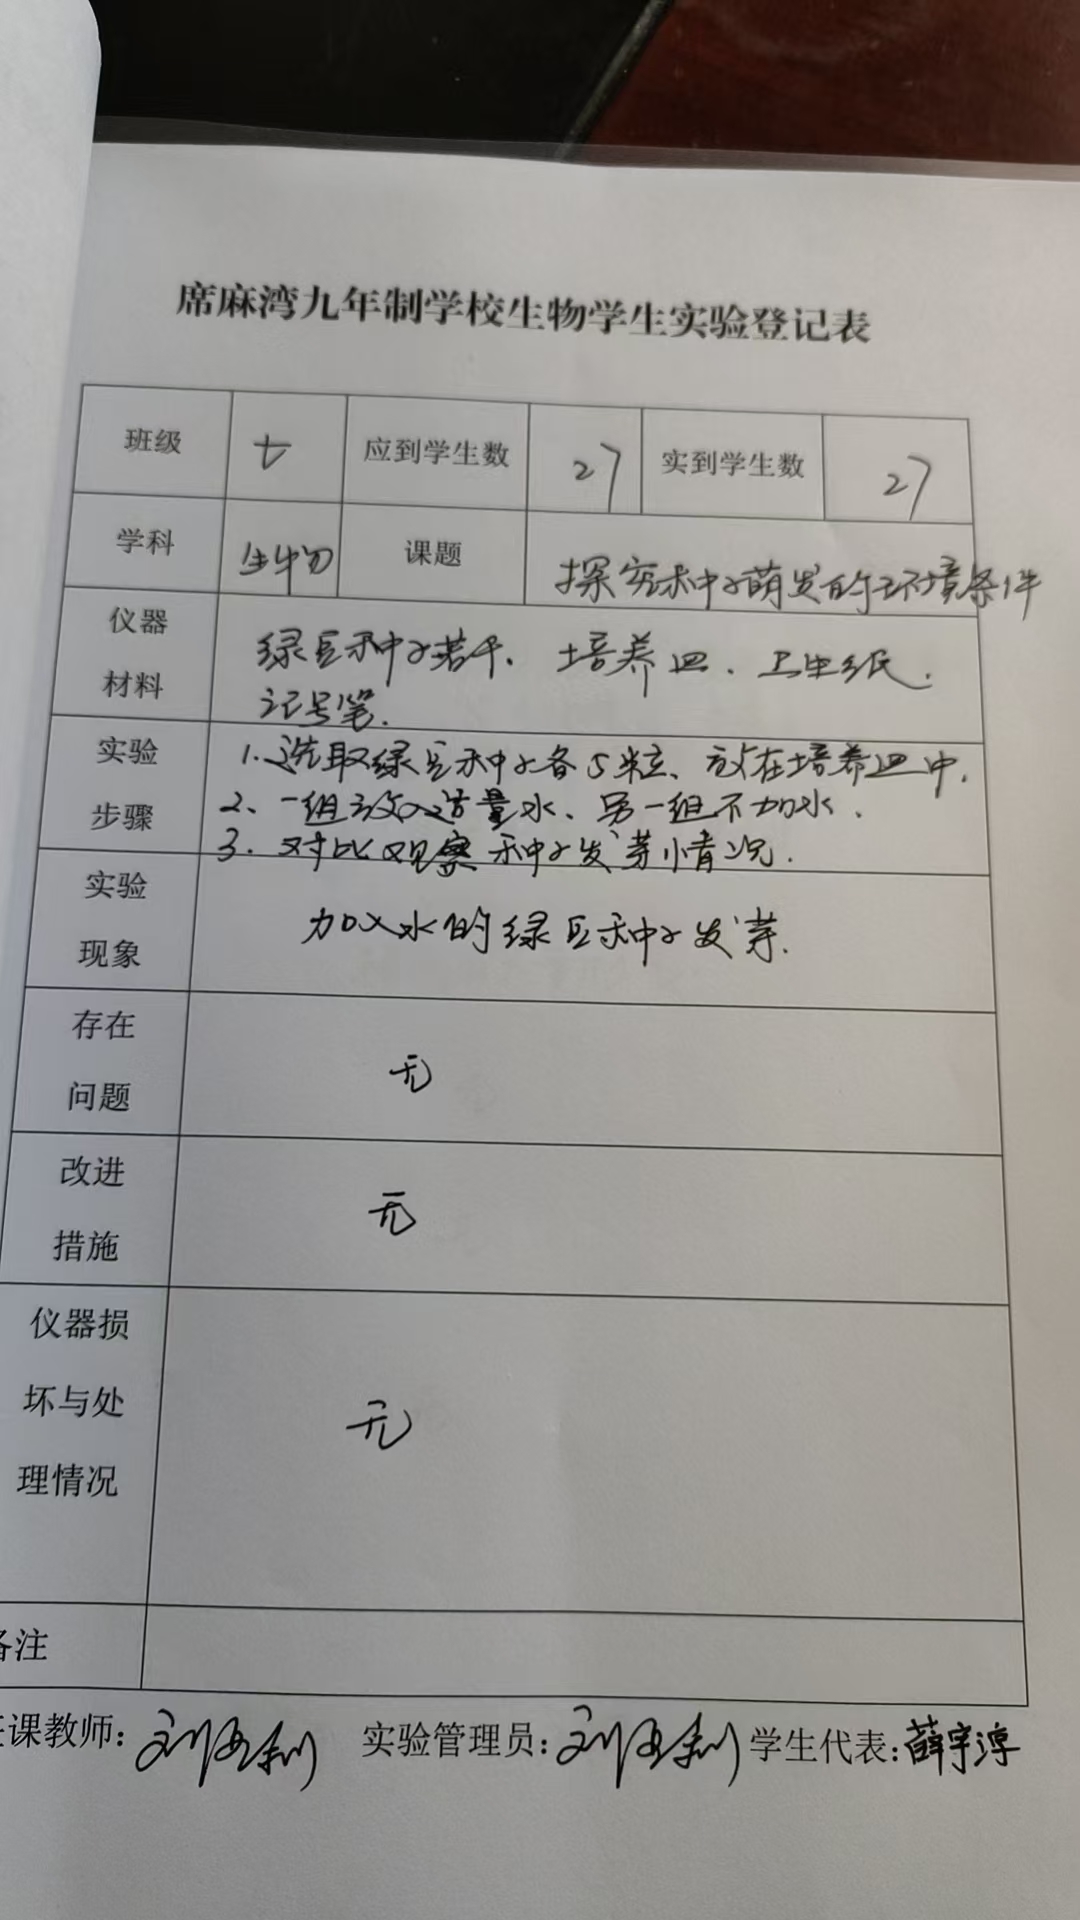 席麻湾九年制学校生物学生实验登记表
班级 七 应到学生数 27 实到学生数 27
学科 生物 课题 探究种子萌发的环境条件
仪器 绿豆种子若干、培养皿、卫生纸、
材料 记号笔.
实验 1.选取绿豆种子各5粒、放在培养皿中.
2、一组放入适量水、另一组不加水.
步骤
3. 对比观察种子发芽情况.
实验
加入水的绿豆种子发芽.
现象
存在
无
问题
改进
无
措施
仪器损
坏与处 无
理情况
备注
课教师: 实验管理员: 学生代表:薛宇淳